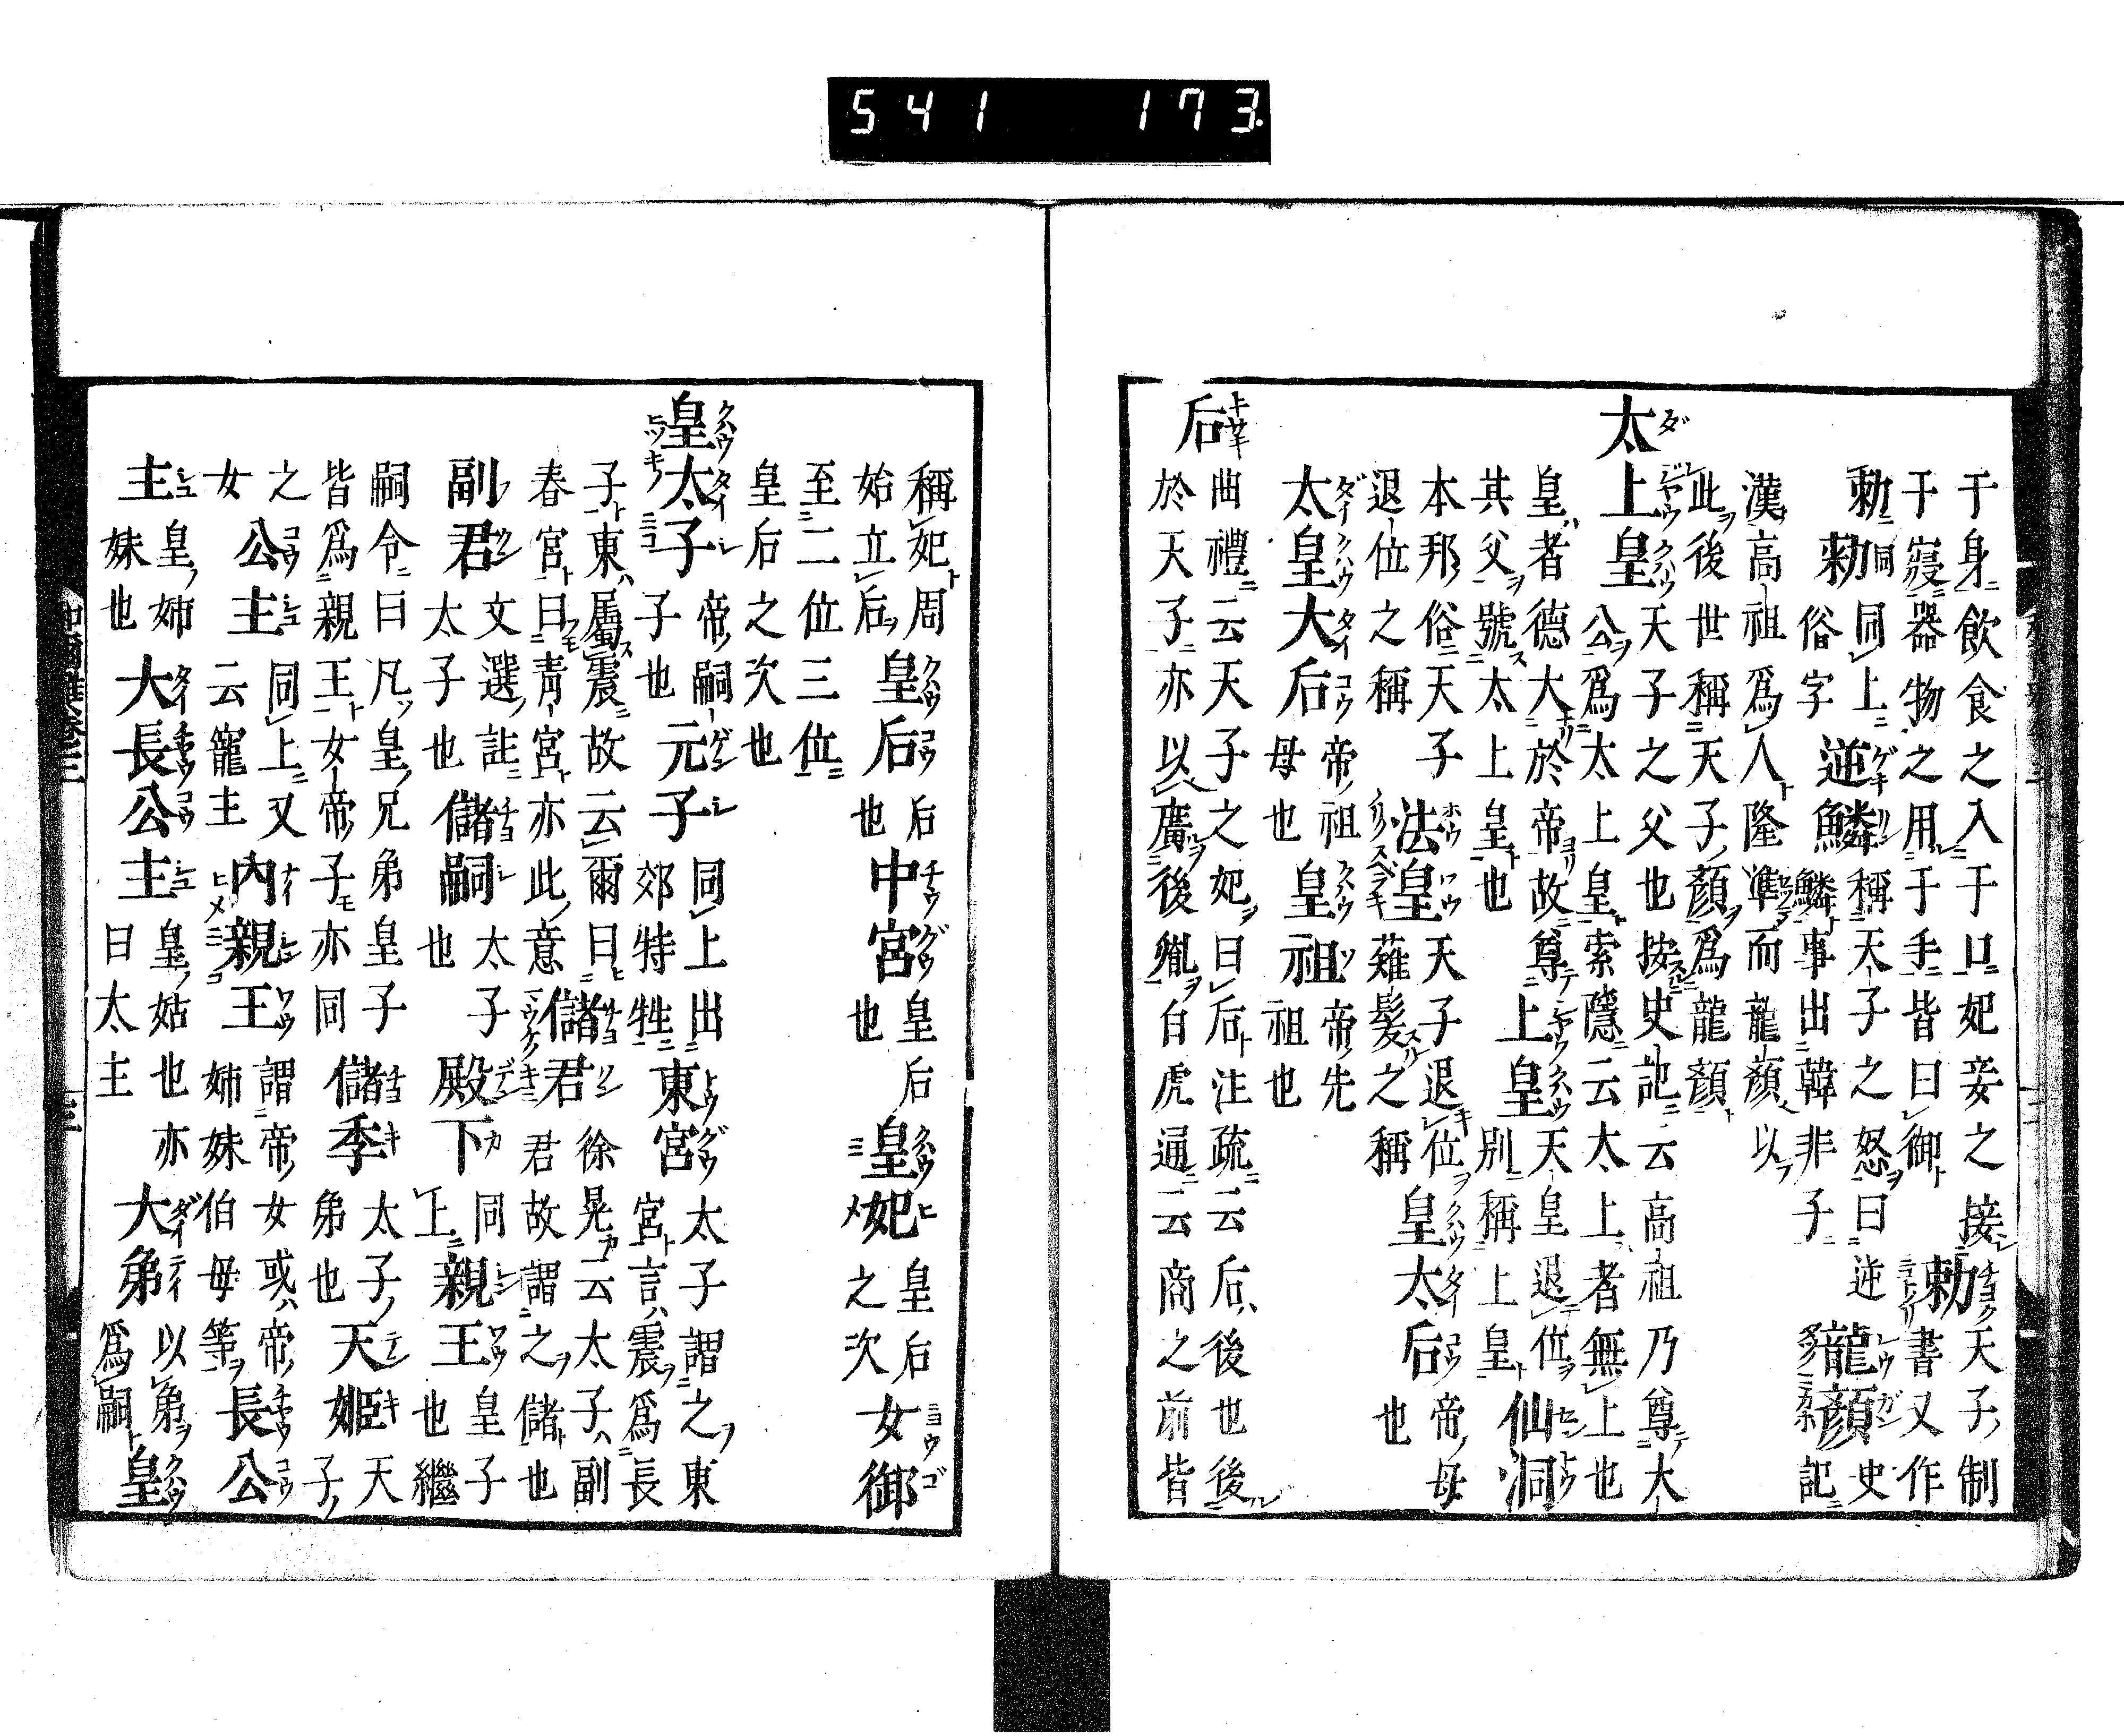 于身飲食之入于口妃妾之接于寢器物之用于手皆曰御 勅 天子制書又作
勑同 勑 同上俗字 逆鱗 稱天子之怒曰逆鱗事出韓非子 龍顔 史記
漢高祖爲人隆準而龍顔以此後世稱天子顔爲龍顔
太上皇 天子之父也按史記云高祖乃尊大公爲太上皇索隱云太上者無上也
皇者德大於帝故尊其父號太上皇也 上皇 天皇退位別稱上皇 仙洞
本邦俗天子退位之稱 法皇 天子退位薙髮之稱 皇太后 帝母也
太皇大后 帝祖母也 皇祖 帝先祖也
后 曲禮云天子之妃曰后注疏云后後也後於天子亦以廣後胤白虎通云商之前皆
稱妃周始立后 皇后 后也 中宮 皇后也 皇妃 皇后之次 女御
至二位三位皇后之次也
皇太子 帝嗣子也 元子 同上出郊特牲 東宮 太子謂之東宮言震爲長
子東屬震故云爾曰春宮曰青宮亦此意 儲君 徐晃云太子副君故謂之儲也
副君 文選註太子也 儲嗣 太子也 殿下 同上 親王 皇子也繼
嗣令曰凡皇兄弟皇子皆爲親王女帝子亦同 儲季 太子弟也 天姬 天子
之女 公主 同上又云寵主 內親王 謂帝女或帝姉妹伯母等 長公
主 皇姉妹也 大長公主 皇姑也亦曰太主 大弟 以弟爲嗣 皇
541 173